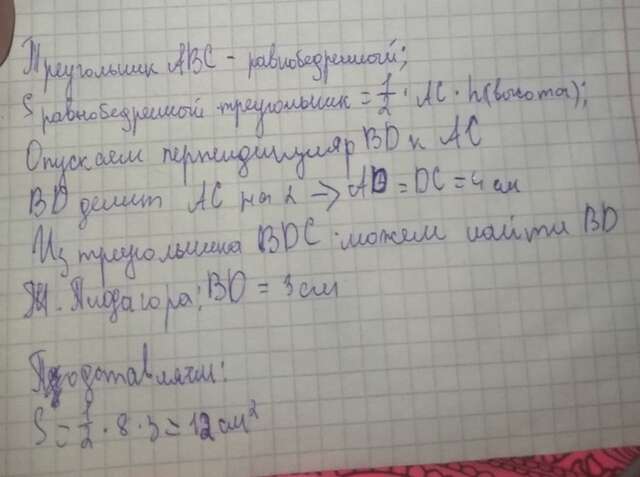 Треугольник ABC - равнобедренный;
S равнобедренный треугольник = 1/2 · AC · h(высота);
Опускаем перпендикуляр BD к AC
BD делит AC на 2 → AD = DC = 4 см
Из треугольника BDC можем найти BD
Т. Пифагора: BD = 3 см
Подставляем:
S = 1/2 · 8 · 3 = 12 см²